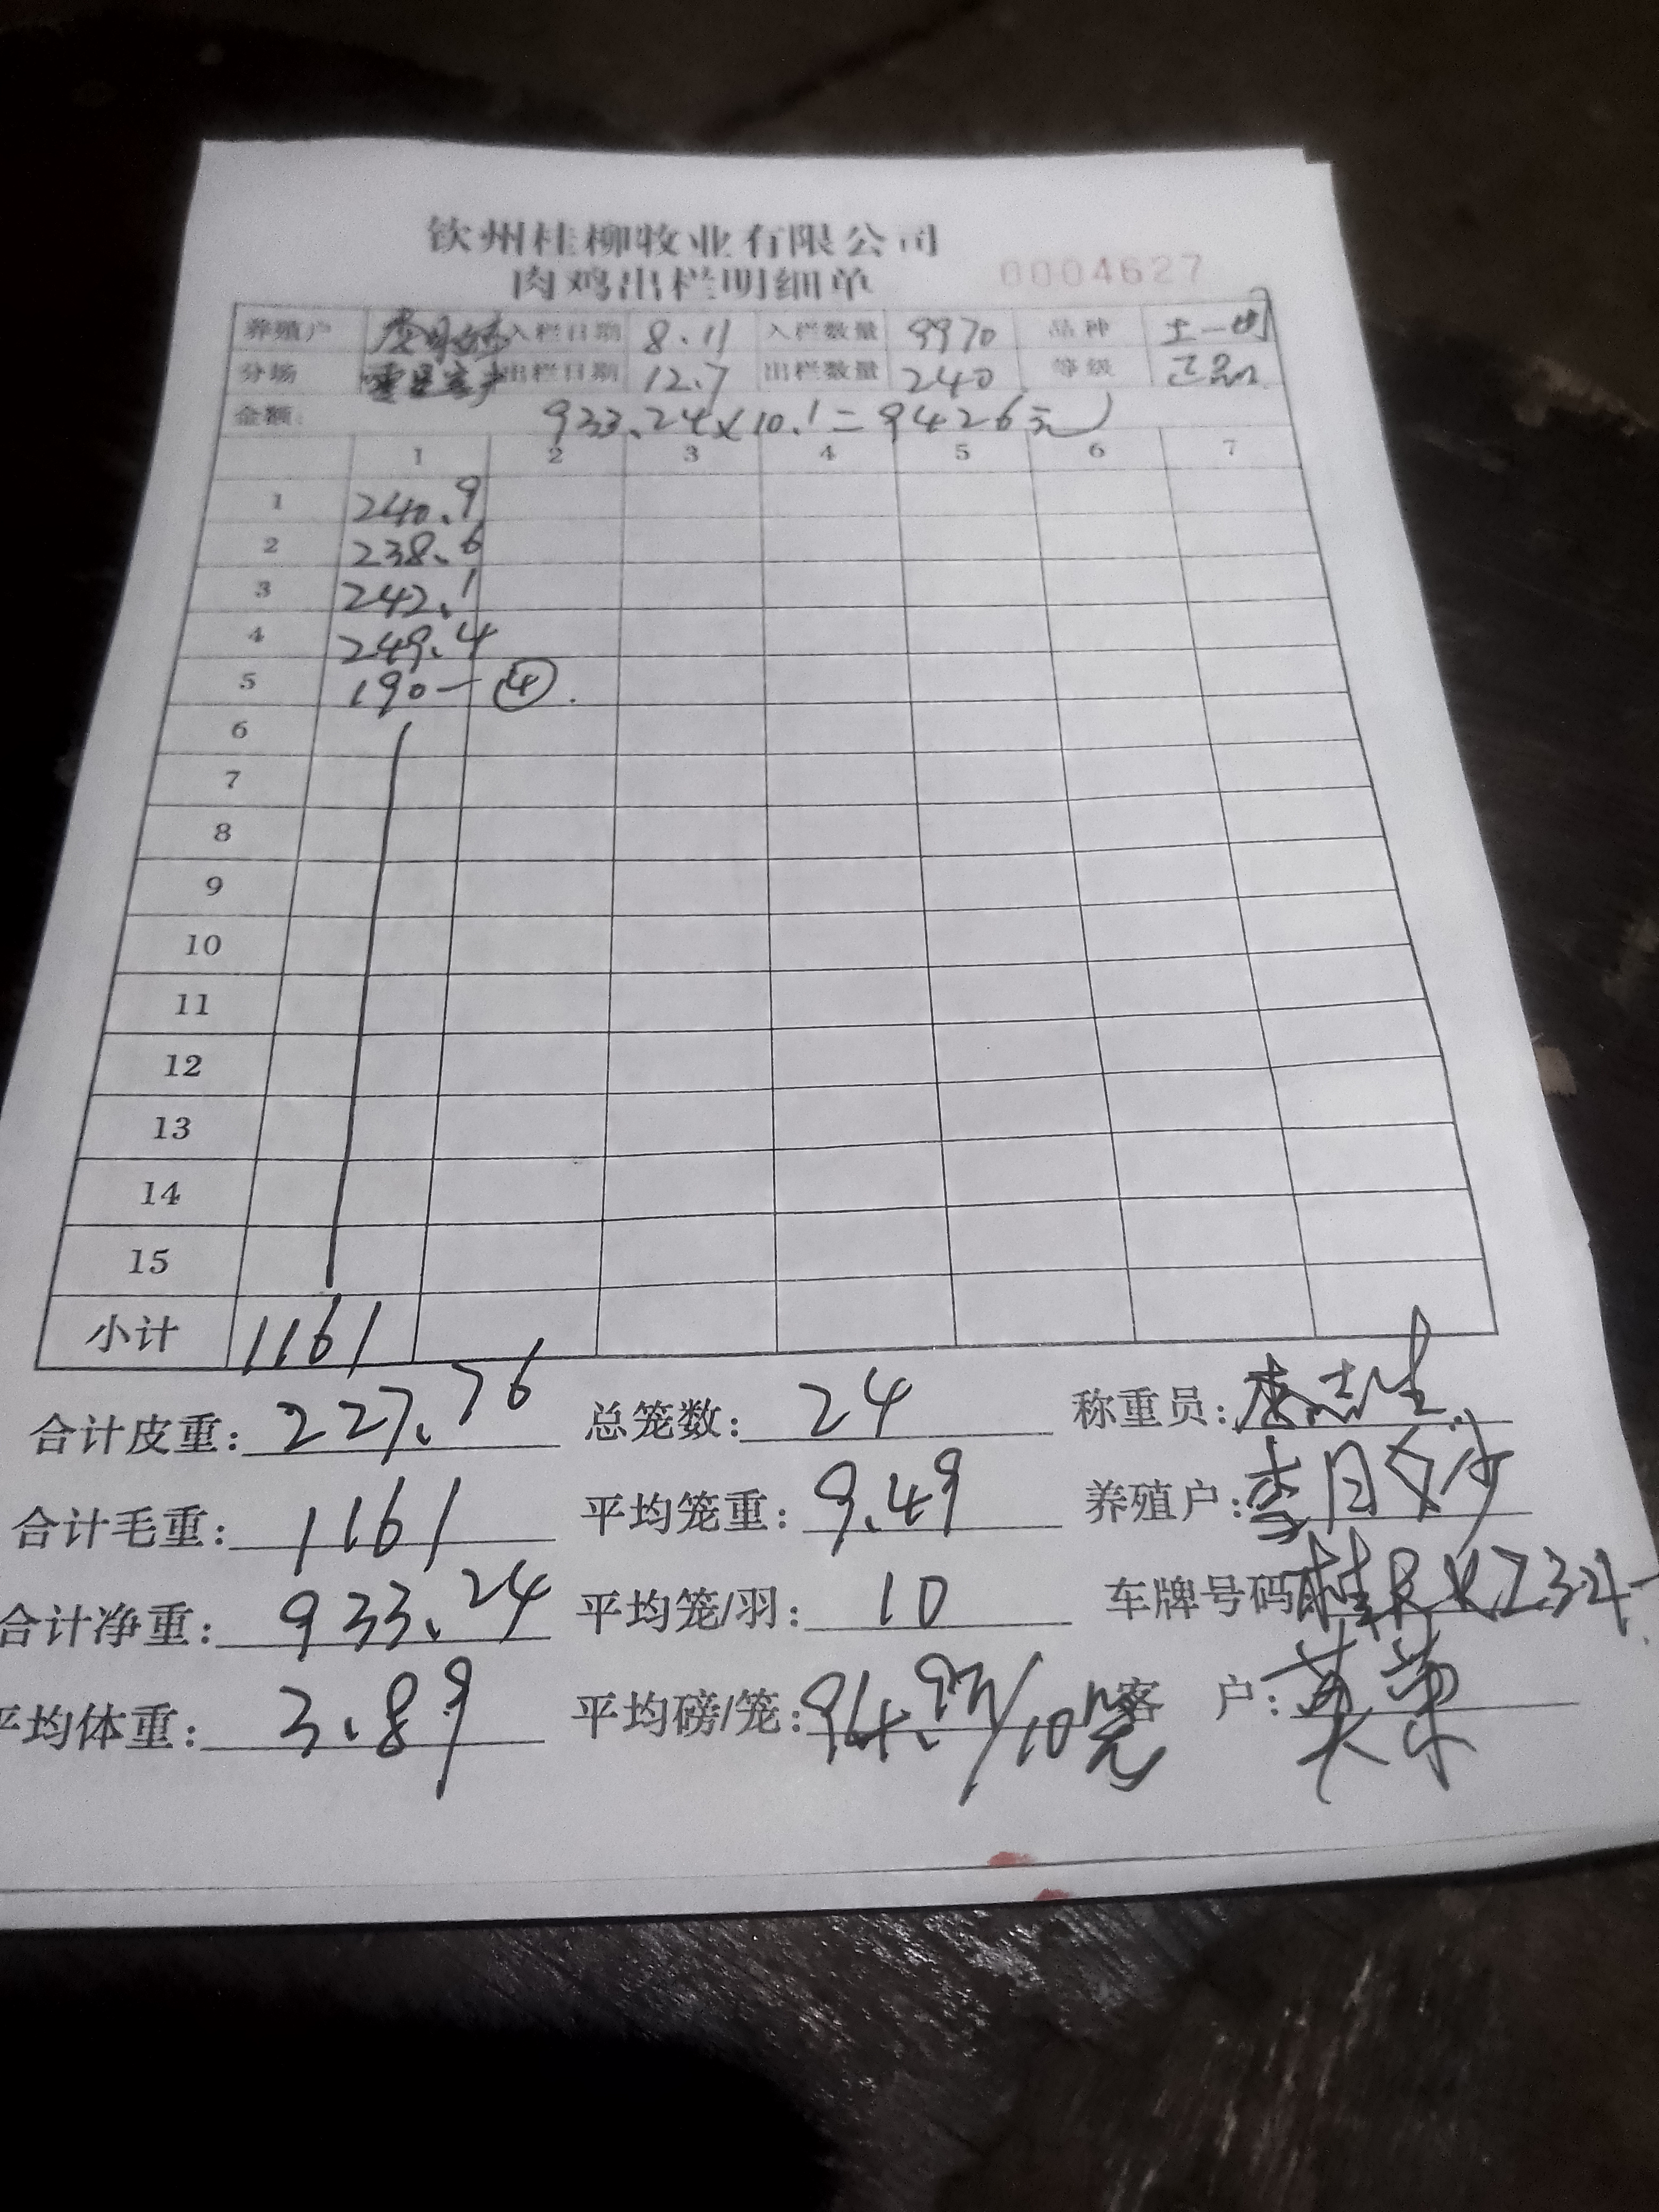 钦州桂柳牧业有限公司
肉鸡出栏明细单 0004627
养殖户 李月 入栏日期 8.11 入栏数量 9970 品种 土一
分场 出栏日期 12.7 出栏数量 240 等级 正品
金额: 933.24×10.1=9426元
1 2 3 4 5 6 7
1 240.9
2 238.6
3 242.1
4 249.4
5 190—④.
6
7
8
9
10
11
12
13
14
15
小计 1161
合计皮重: 227.76 总笼数: 24 称重员: 志生
合计毛重: 1161 平均笼重: 9.49 养殖户: 李月
合计净重: 933.24 平均笼/羽: 10 车牌号码 桂R
平均体重: 3.89 平均磅/笼: 94.93/10 客户: 英荣